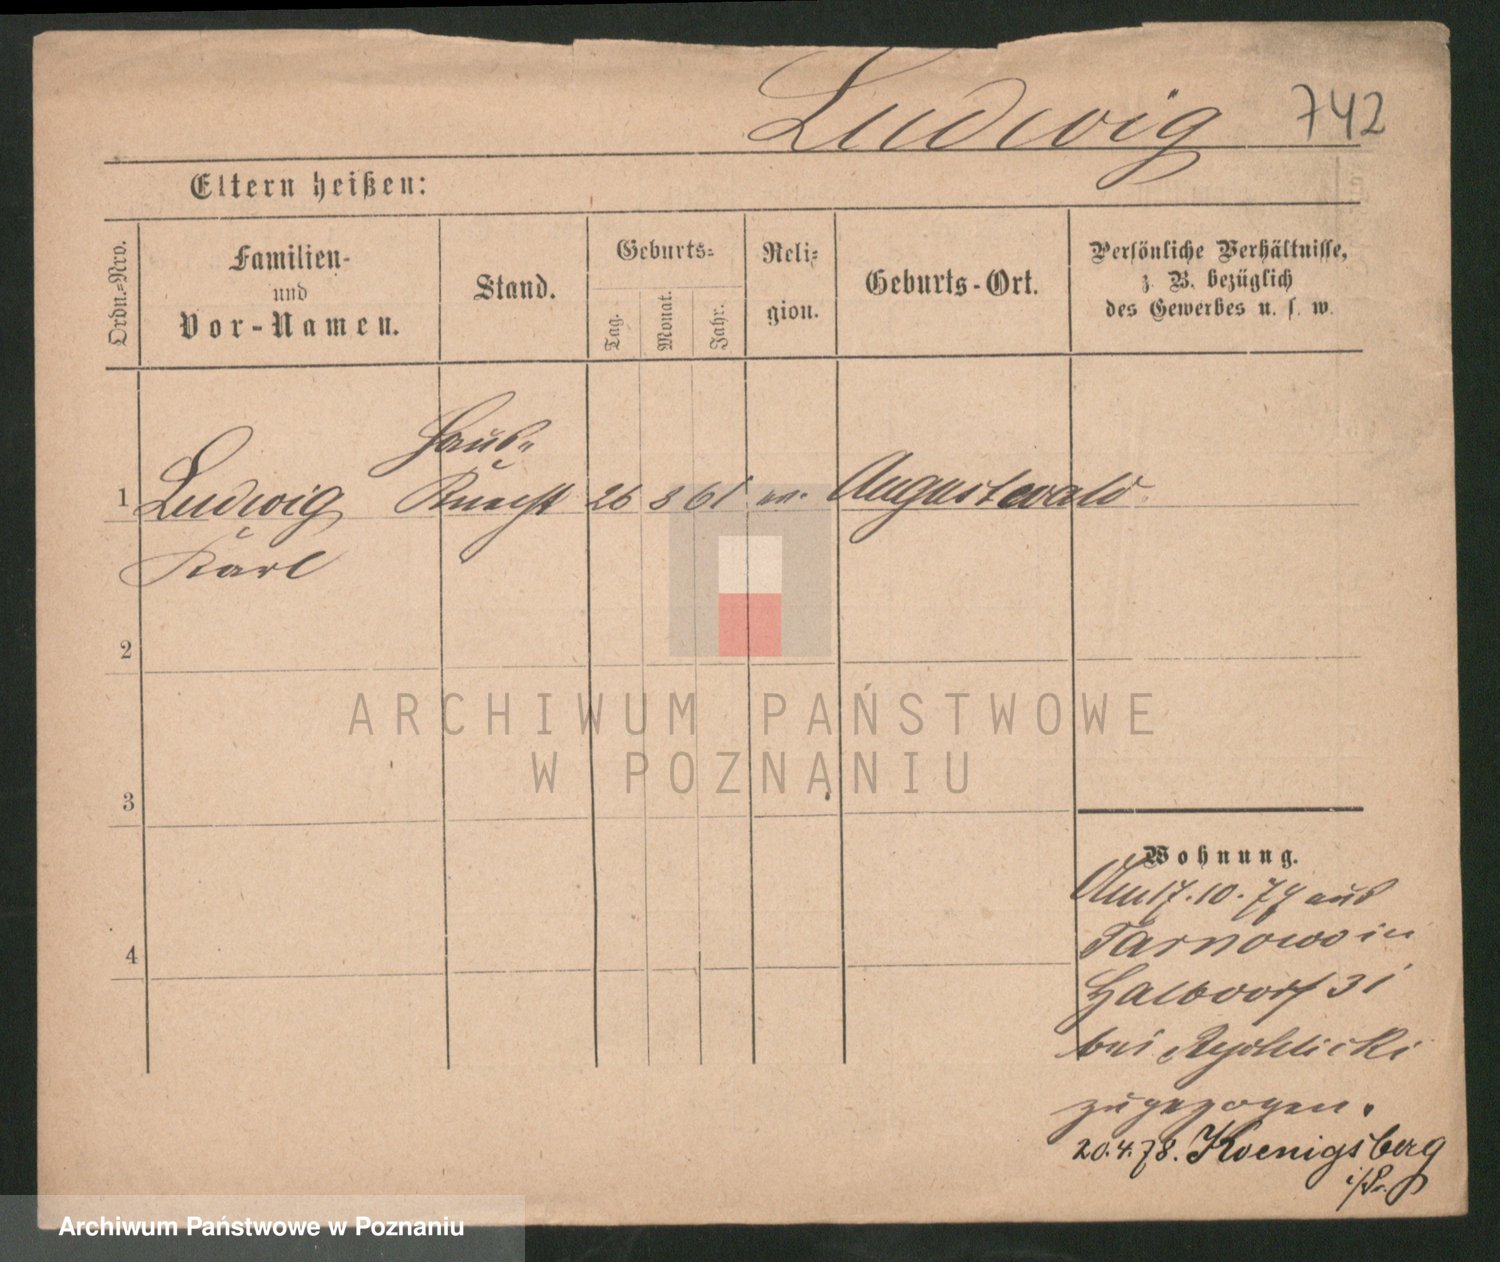 Ludwig 742
Eltern heißen:
Ordn.=Nro.
Familien-
und
Vor-Namen.
Stand.
Geburts=
Tag.
Monat.
Jahr.
Reli=
gion.
Geburts-Ort.
Persönliche Verhältnisse,
z. B. bezüglich
des Gewerbes u. s. w.
Haus-
1 Ludwig Knecht 26 8 61 ev. Augustwald
Karl
2
3
4
Wohnung.
Am 17.10.77 aus
Tarnowo in
Halbdorf 31
bei Rychlicki
zugezogen.
20.4.78. Koenigsberg
i/Pr.
ARCHIWUM PAŃSTWOWE
W POZNANIU
Archiwum Państwowe w Poznaniu